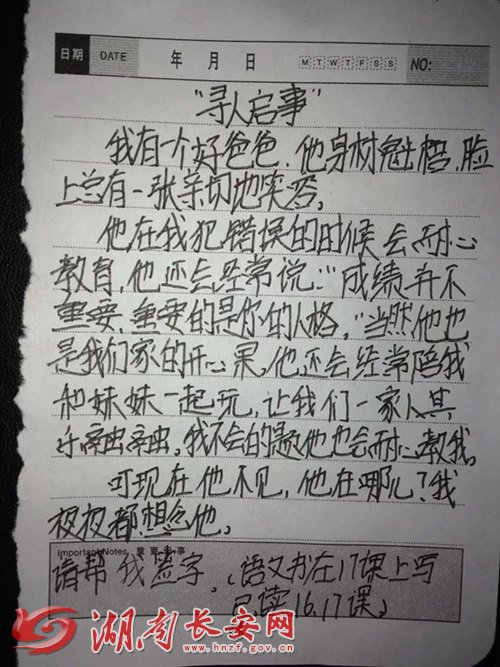 日期 DATE 年 月 日 M T W T F S S NO:
“寻人启事”
我有一个好爸爸，他身材魁梧，脸
上总有一张亲切地笑容。
他在我犯错误的时候会耐心
教育，他还会经常说：“成绩并不
重要，重要的是你的人格，“当然他也
是我们家的开心果，他还会经常陪我
和妹妹一起玩，让我们一家人其
乐融融。我不会的题他也会耐心教我。
可现在他不见，他在哪儿？我
夜夜都想念他。
Important Notes 重要记事
请帮我签字，（语文书在17课上写
已读16,17课）
湖南长安网
www.hnzf.gov.cn